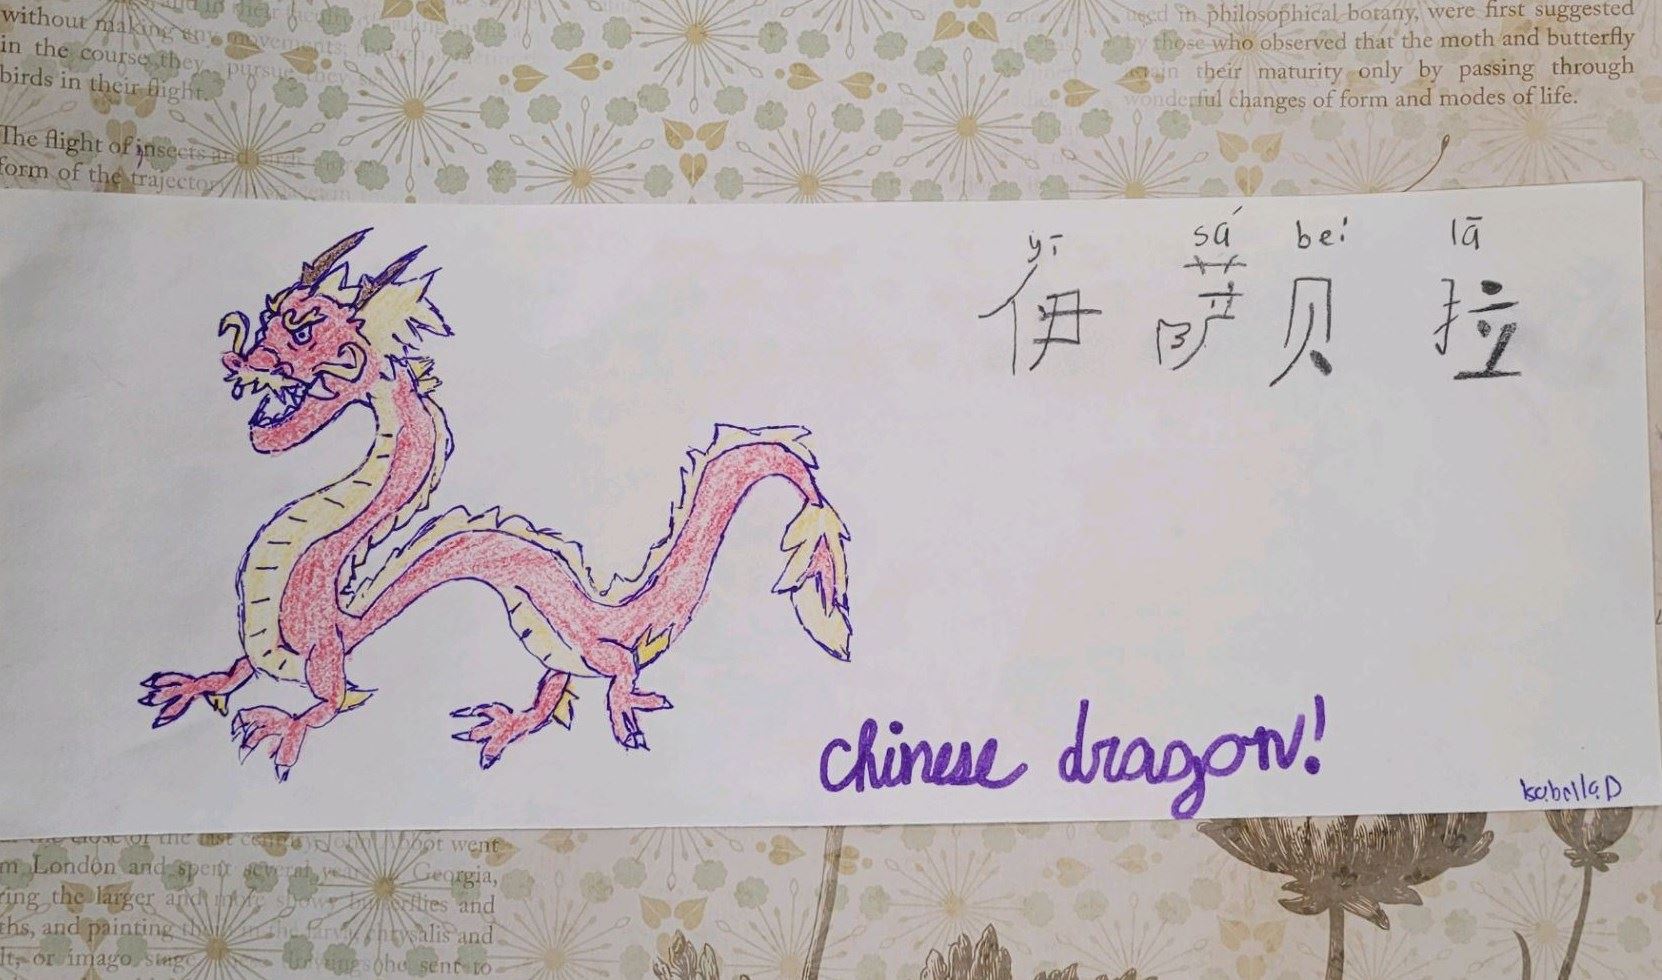 without making any movements;
in the course they pursue, they
birds in their flight.
The flight of insects and
form of the trajectory
used in philosophical botany, were first suggested
by those who observed that the moth and butterfly
their maturity only by passing through
wonderful changes of form and modes of life.
yī sá bei lā
伊萨贝拉
chinese dragon!
Isabella D
the close of the last century, John Abbot went
m London and spent several years Georgia,
ring the larger and more showy butterflies and
ths, and painting the larva, chrysalis and
lt, or imago stage sent to